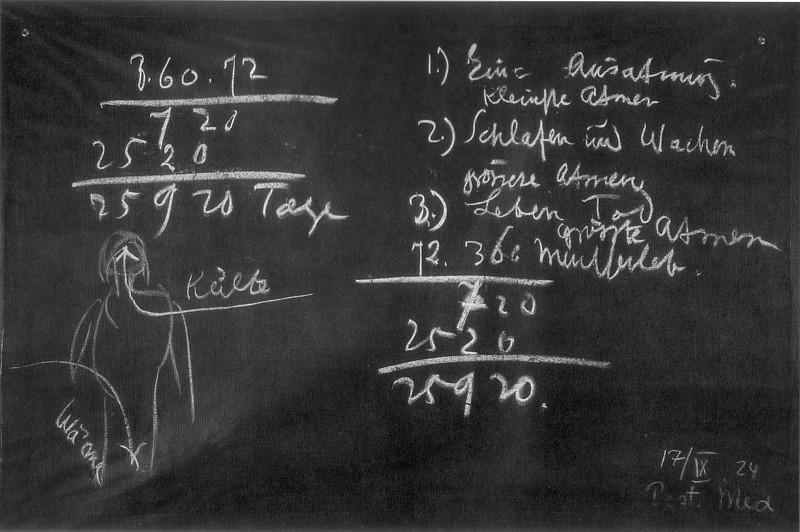 3.60.72
720
2520
25920 Tage
Kälte
Wärme
1.) Ein= Ausatmung.
kleinste Atmen
2.) Schlafen und Wachen
grössere Atmen
3.) Leben Tod
grösste Atmen
72. 360
720
2520
25920.
17/IX 24
Past. Med